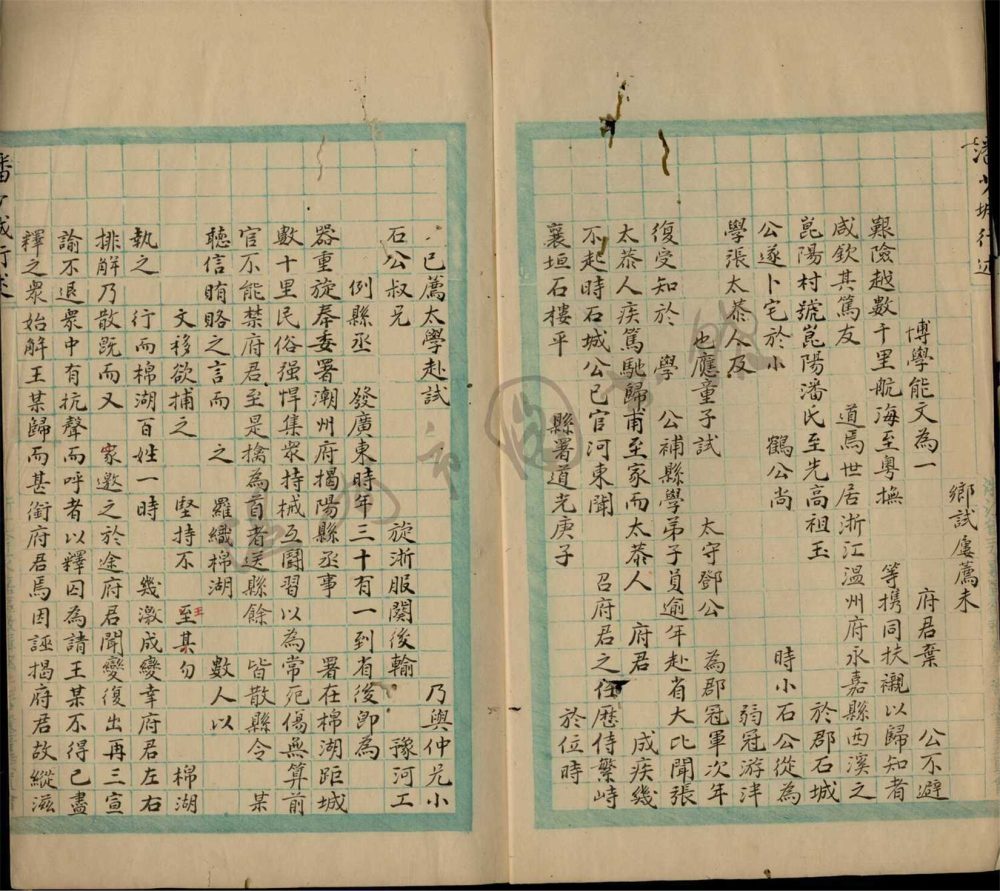 潘少城行述
鄉試屢薦未
博學能文為一 府君棄 公不避
艱險越數千里航海至粵撫 等攜同扶襯以歸知者
咸欽其篤友 道焉世居浙江溫州府永嘉縣西溪之
崑陽村號崑陽潘氏至先高祖玉 於郡石城
公遂卜宅於小 鶴公尚 時小石公從為
學張太恭人及 弱冠游泮
也應童子試 太守鄧公 為郡冠軍次年
復受知於 學 公補縣學弟子員逾年赴省大比聞張
太恭人疾篤馳歸甫至家而太恭人 府君 成疾幾
不起時石城公已官河東聞 召府君之任歷侍繁峙
襄垣石樓平 縣署道光庚子 於位時
已薦太學赴試 乃與仲兄小
石公叔兄 旋浙服闋後輸 豫河工
例縣丞 發廣東時年三十有一到省後即為
器重旋奉委署潮州府揭陽縣丞事 署在棉湖距城
數十里民俗强悍集衆持械互鬪習以為常死傷無算前
官不能禁府君至是擒為首者送縣餘 皆散縣令 某
聽信賄賂之言而 之 羅織棉湖 數人以
文移欲捕之 堅持不 至王某勿 棉湖
執之 行而棉湖百姓一時 幾激成變幸府君左右
排解乃散既而又 家邀之於途府君聞變復出再三宣
諭不退衆中有抗聲而呼者以釋囚為請王某不得已盡
釋之衆始解王某歸而甚銜府君焉因誣揭府君故縱滋
潘少城行述